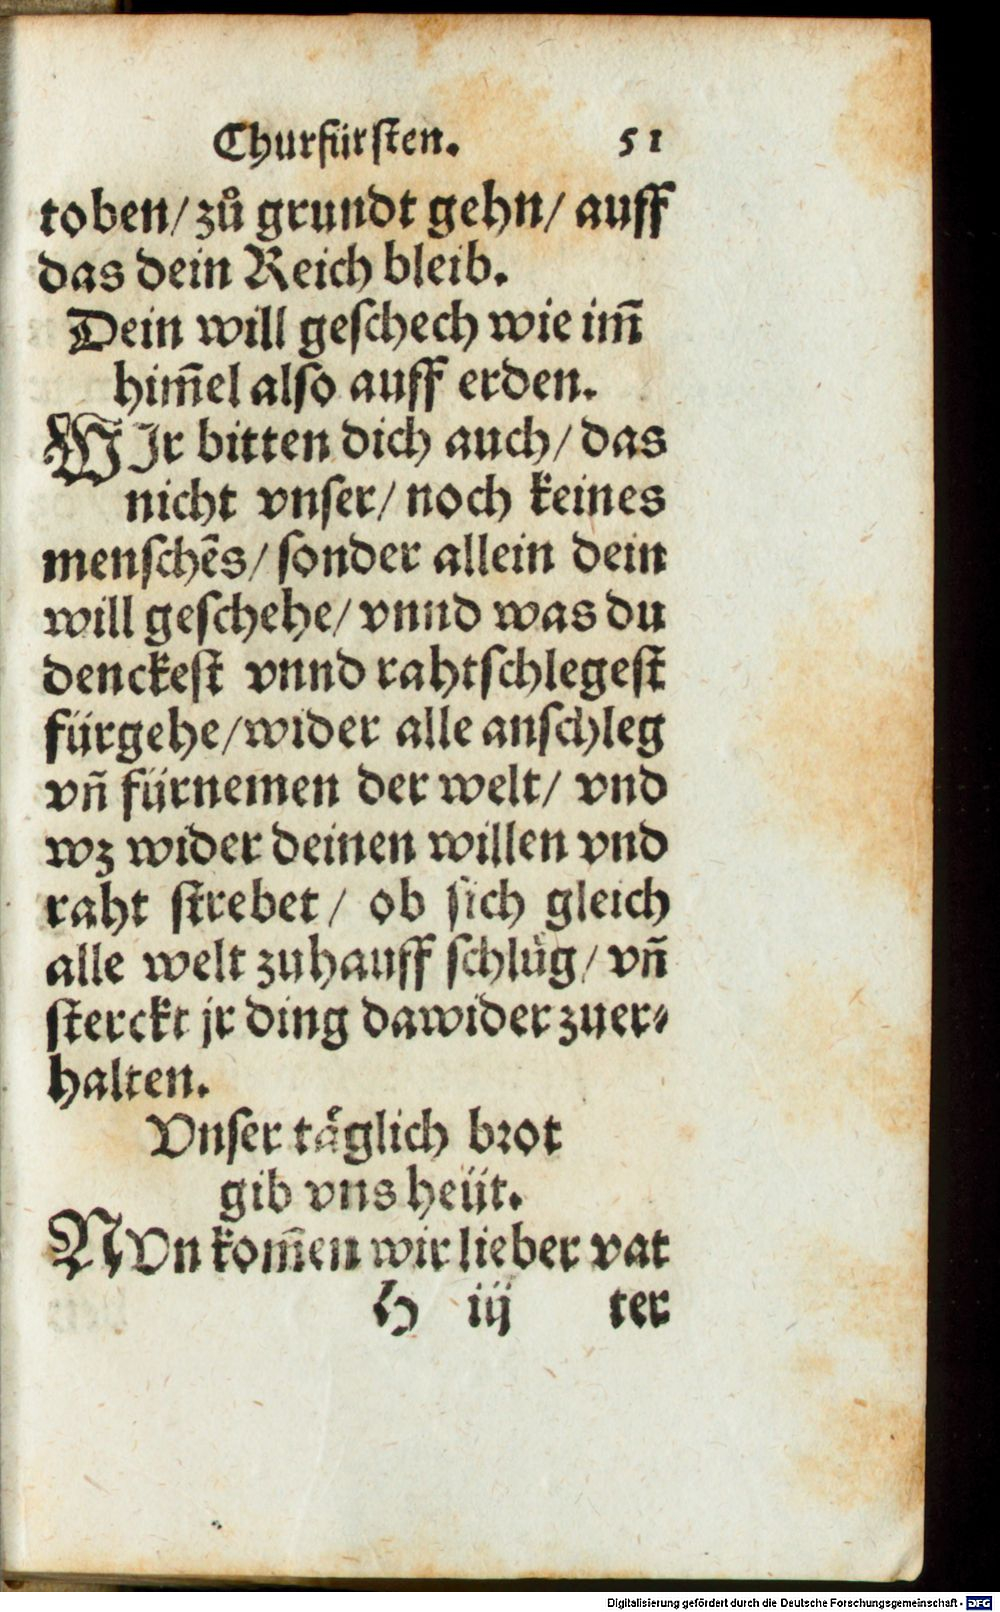 Churfürsten. 51
toben/ zů grundt gehn/ auff
das dein Reich bleib.
Dein will geschech wie im̃
him̃el also auff erden.
WJr bitten dich auch/ das
nicht vnser/ noch keines
menschẽs/ sonder allein dein
will geschehe/ vnnd was du
denckest vnnd rahtschlegest
fürgehe/ wider alle anschleg
vñ fürnemen der welt/ vnd
wz wider deinen willen vnd
raht strebet/ ob sich gleich
alle welt zuhauff schlüg/ vñ
sterckt jr ding dawider zuer-
halten.
Vnser täglich brot
gib vns heüt.
NVn kom̃en wir lieber vat
H iij ter
Digitalisierung gefördert durch die Deutsche Forschungsgemeinschaft - DFG